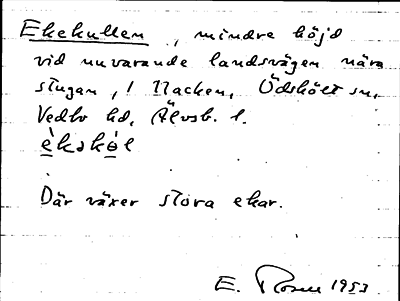 Ekekullen, mindre höjd
vid nuvarande landsvägen nära
stugan, i Nacken, Ödskölt sn,
Vedbo hd, Älvsb. l.
èkəkəl
Där växer stora ekar.
E. Rosen 1953